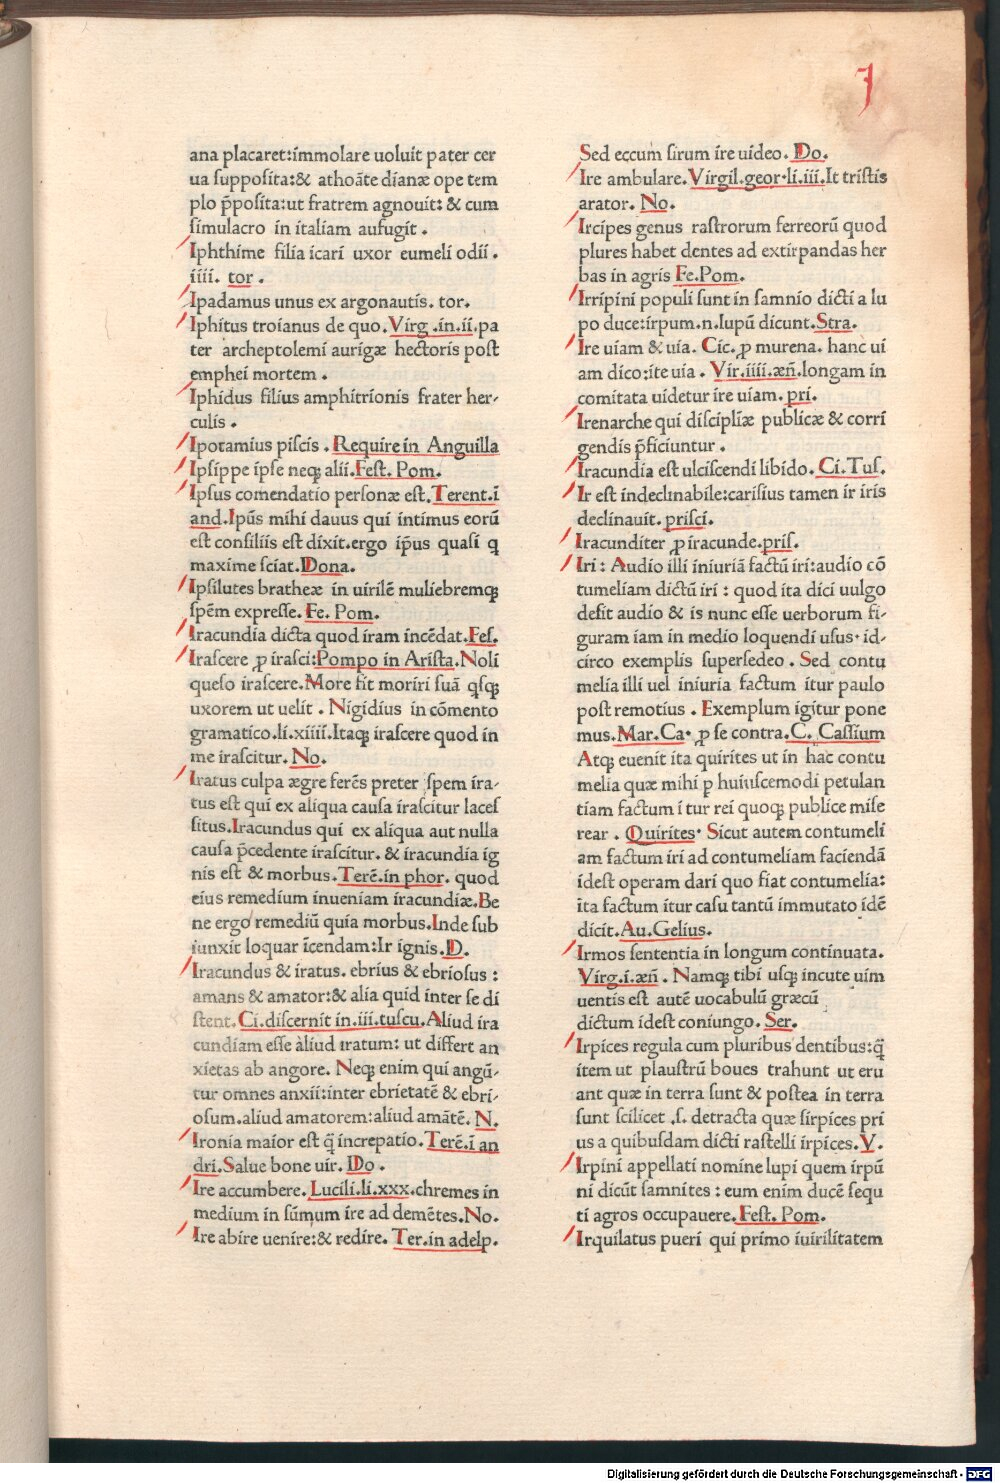 I
ana placaret:immolare uoluit pater cer
ua supposita:& athoāte dianæ ope tem
plo p̄posita:ut fratrem agnouit: & cum
simulacro in italiam aufugit .
Iphthime filia icari uxor eumeli odii .
iiii. tor .
Ipadamus unus ex argonautis. tor.
Iphitus troianus de quo. Virg .in.ii.pa
ter archeptolemi aurigæ hectoris post
emphei mortem .
Iphidus filius amphitrionis frater her-
culis .
Ipotamius piscis . Require in Anguilla
Ipsippe ipse neqȝ alii. Fest. Pom.
Ipsus comendatio personæ est. Terent.ī
and. Ip̄us mihi dauus qui intimus eorū
est consiliis est dixit.ergo ip̄us quasi q
maxime sciat. Dona.
Ipsilutes bratheæ in uirilē muliebremqȝ
spēm expresse. Fe. Pom.
Iracundia dicta quod iram incēdat. Fes.
Irascere ꝑ irasci: Pompo in Arista. Noli
queso irascere. More fit moriri suā qsqȝ
uxorem ut uelit . Nigidius in cōmento
gramatico.li.xiiii. Itaqȝ irascere quod in
me irascitur. No.
Iratus culpa ægre ferēs preter spem ira-
tus est qui ex aliqua causa irascitur laces
situs. Iracundus qui ex aliqua aut nulla
causa p̄cedente irascitur. & iracundia ig
nis est & morbus. Terē.in phor. quod
eius remedium inueniam iracundiæ. Be
ne ergo remediū quia morbus. Inde sub
iunxit loquar īcendam: Ir ignis. D.
Iracundus & iratus. ebrius & ebriosus :
amans & amator:& alia quid inter se di
stent. Ci. discernit in.iii.tuscu. Aliud ira
cundiam esse àliud iratum: ut differt an
xietas ab angore. Neqȝ enim qui angū-
tur omnes anxii:inter ebrietatē & ebri-
osum.aliud amatorem:aliud amātē. N.
Ironia maior est q̄ increpatio. Terē.ī an
dri. Salue bone uir. Do .
Ire accumbere. Lucili.li.xxx.chremes in
medium in sūmum ire ad demētes. No.
Ire abire uenire:& redire. Ter.in adelp.
Sed eccum sirum ire uideo. Do.
Ire ambulare. Virgil.geor.li.iii. It tristis
arator. No.
Ircipes genus rastrorum ferreorū quod
plures habet dentes ad extirpandas her
bas in agris Fe. Pom.
Irripini populi sunt in samnio dicti a lu
po duce:irpum.n.lupū dicunt. Stra.
Ire uiam & uia. Cic. ꝑ murena. hanc ui
am dico:ite uia . Vir.iiii.æn̄.longam in
comitata uidetur ire uiam. pri.
Irenarche qui disciplīæ publicæ & corri
gendis p̄ficiuntur .
Iracundia est ulciscendi libido. Ci. Tus.
Ir est indeclinabile:carisius tamen ir iris
declinauit. prisci.
Iracunditer ꝑ iracunde.pris.
Iri : Audio illi iniuriā factū iri:audio cō
tumeliam dictū iri : quod ita dici uulgo
desit audio & is nunc esse uerborum fi-
guram iam in medio loquendi usus. id-
circo exemplis supersedeo . Sed contu
melia illi uel iniuria factum itur paulo
post remotius . Exemplum igitur pone
mus. Mar. Ca. ꝑ se contra. C. Cassium
Atqȝ euenit ita quirites ut in hac contu
melia quæ mihi ꝑ huiuscemodi petulan
tiam factum i tur rei quoqȝ publice mise
rear . Quirites. Sicut autem contumeli
am factum iri ad contumeliam faciendā
idest operam dari quo fiat contumelia:
ita factum itur casu tantū immutato idē
dicit. Au. Gelius.
Irmos sententia in longum continuata.
Virg.i.æn̄ . Namqȝ tibi usqȝ incute uim
uentis est autē uocabulū græcū
dictum idest coniungo. Ser.
Irpices regula cum pluribus dentibus:q̄
item ut plaustrū boues trahunt ut eru
ant quæ in terra sunt & postea in terra
sunt scilicet .s. detracta quæ sirpices pri
us a quibusdam dicti rastelli irpices. V.
Irpini appellati nomine lupi quem irpū
ni dicūt samnites : eum enim ducē sequ
ti agros occupauere. Fest. Pom.
Irquilatus pueri qui primo iuirilitatem
Digitalisierung gefördert durch die Deutsche Forschungsgemeinschaft - DFG